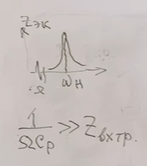 Zэк
Ω ωн
1/ΩCр >> Zвхтр.